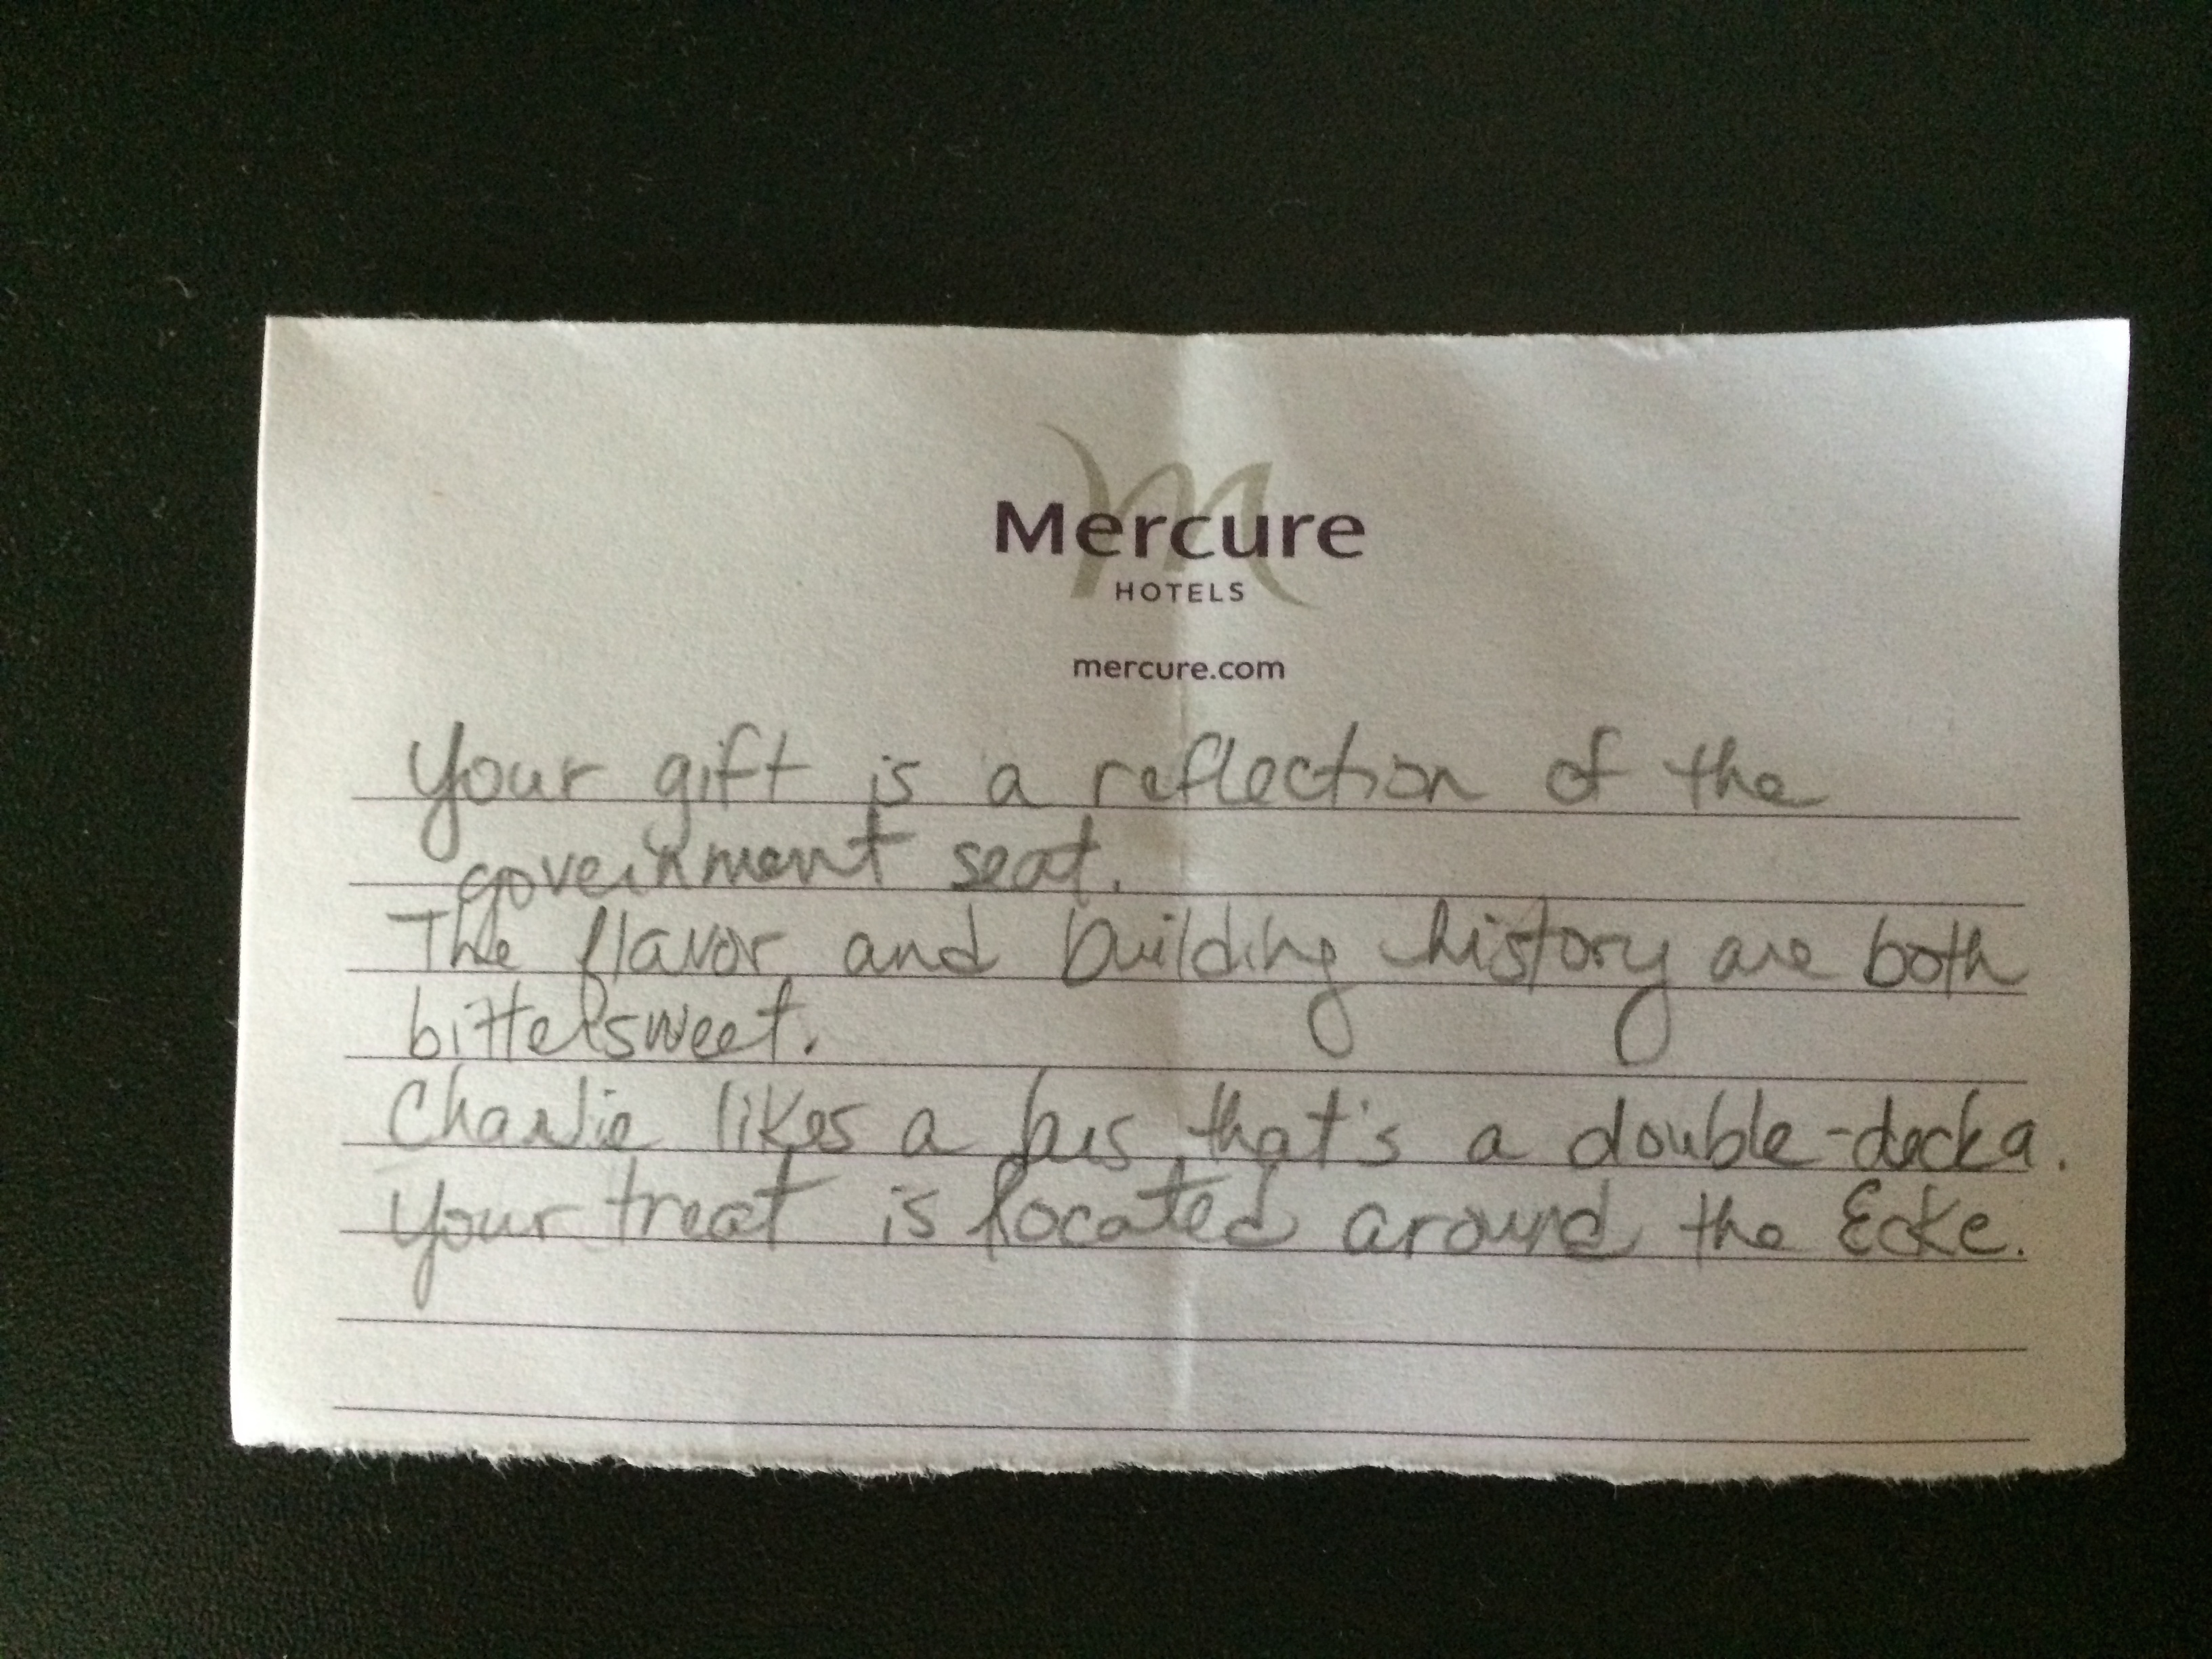 Mercure
HOTELS
mercure.com
Your gift is a reflection of the
government seat.
The flavor and building history are both
bittersweet.
Charlie likes a bus that's a double-decka.
Your treat is located around the Ecke.